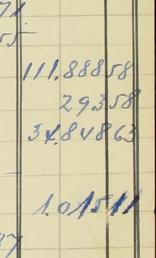 71
55
111.88858
29358
34.84863
1.01511
37